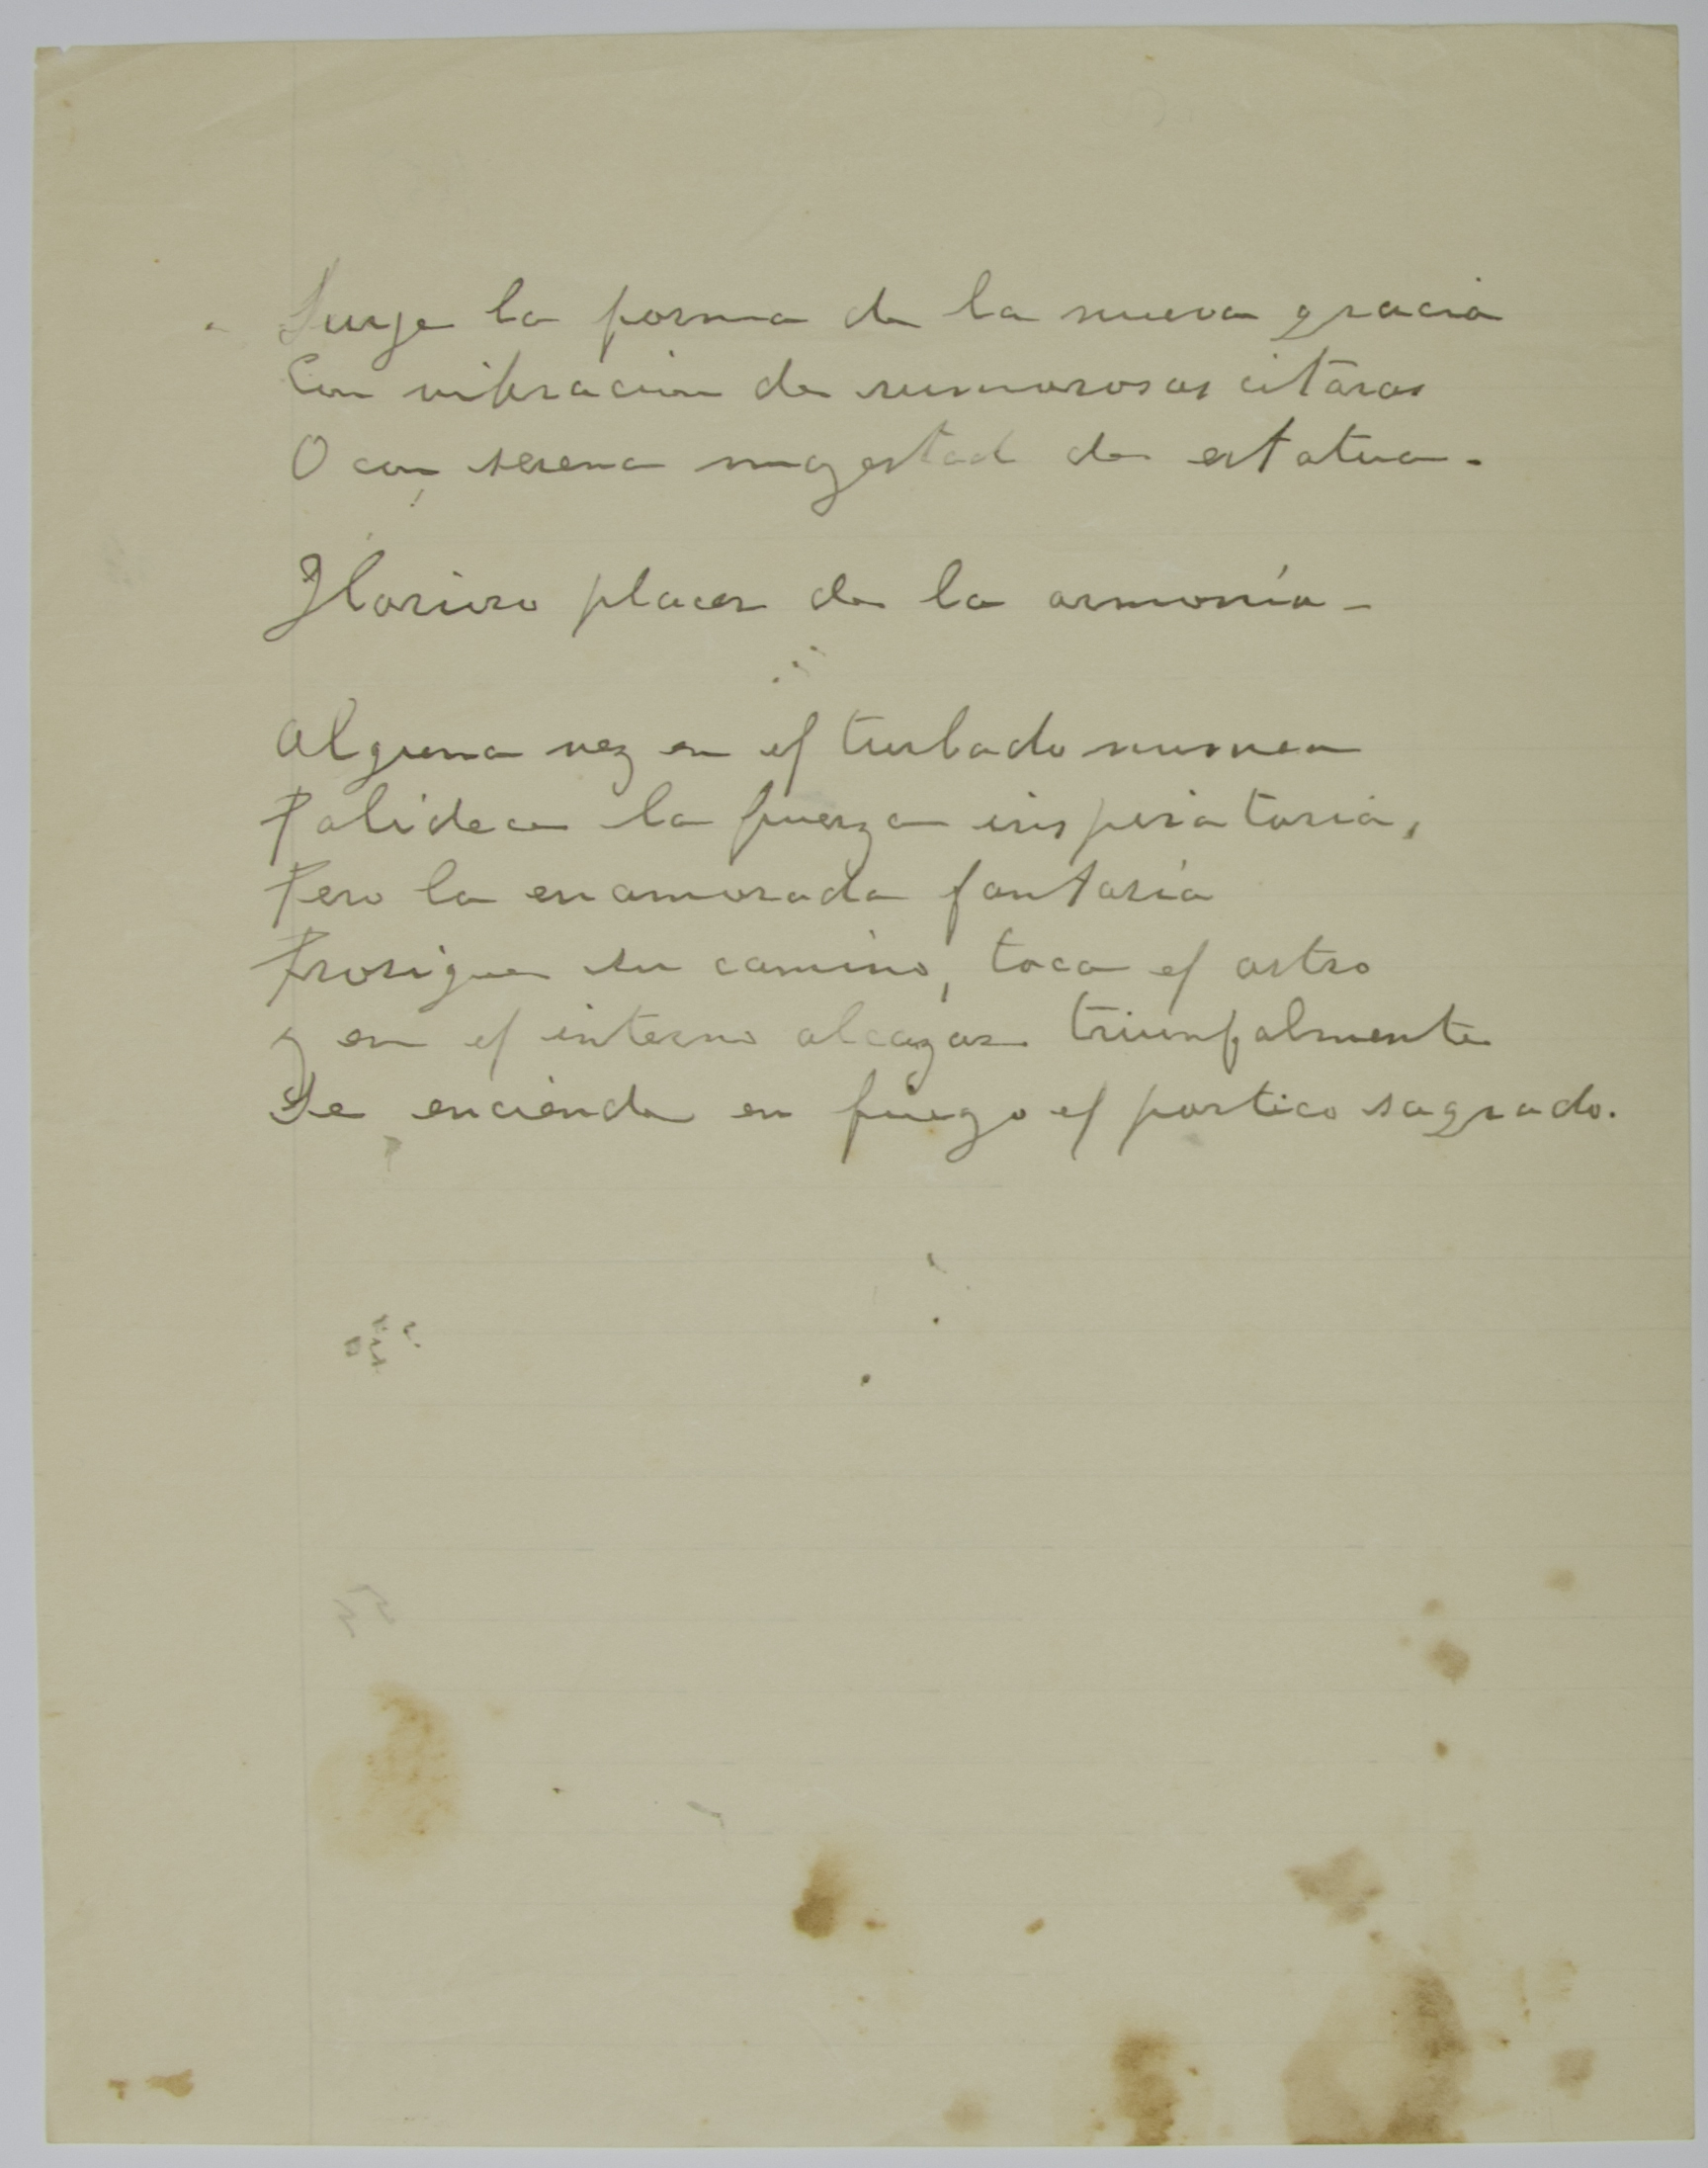 Surge la forma de la nueva gracia
Con vibracion de rumorosas citaras
O con serena magestad de estatua.
Glorioso placer de la armonía.
Alguna vez en el turbado numen
Palidece la fuerza inspiratoria,
Pero la enamorada fantasía
Prosigue su camino, toca el astro
y en el interno alcazar triunfalmente
Se enciende en fuego el portico sagrado.